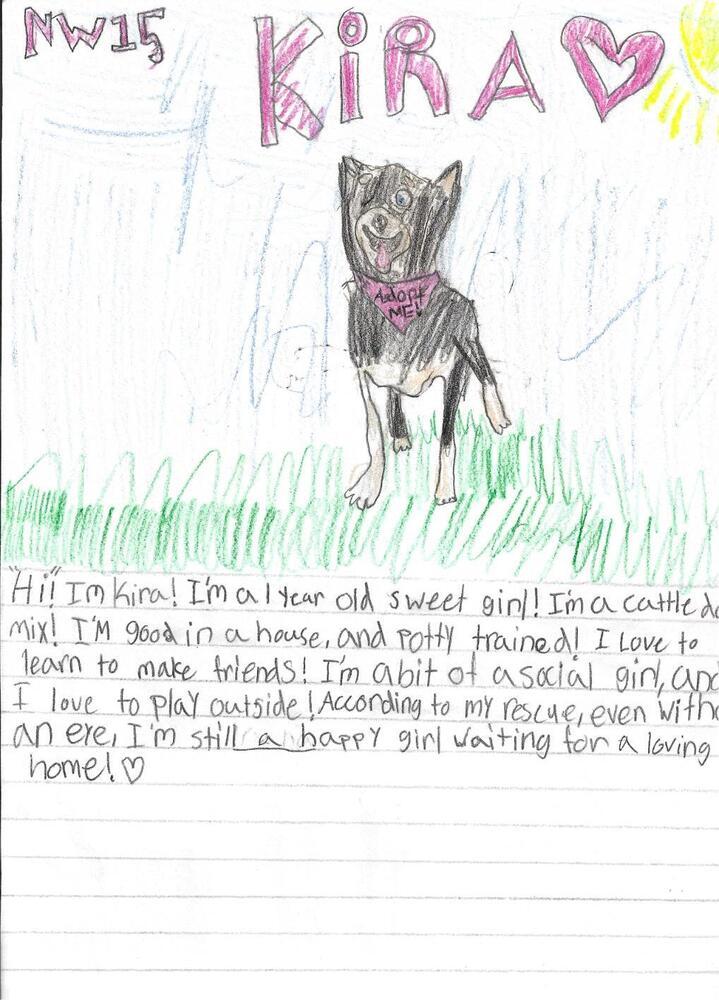 NW15
KiRA
Adopt
ME!
"Hi!" Im Kira! I'm a 1 year old sweet girl! I'm a cattle do
mix! I'M good in a house, and potty trained! I Love to
learn to make friends! I'm a bit of a social girl, and
I love to play outside! According to my rescue, even witho
an eye, I'm still a happy girl waiting for a loving
home! ♡